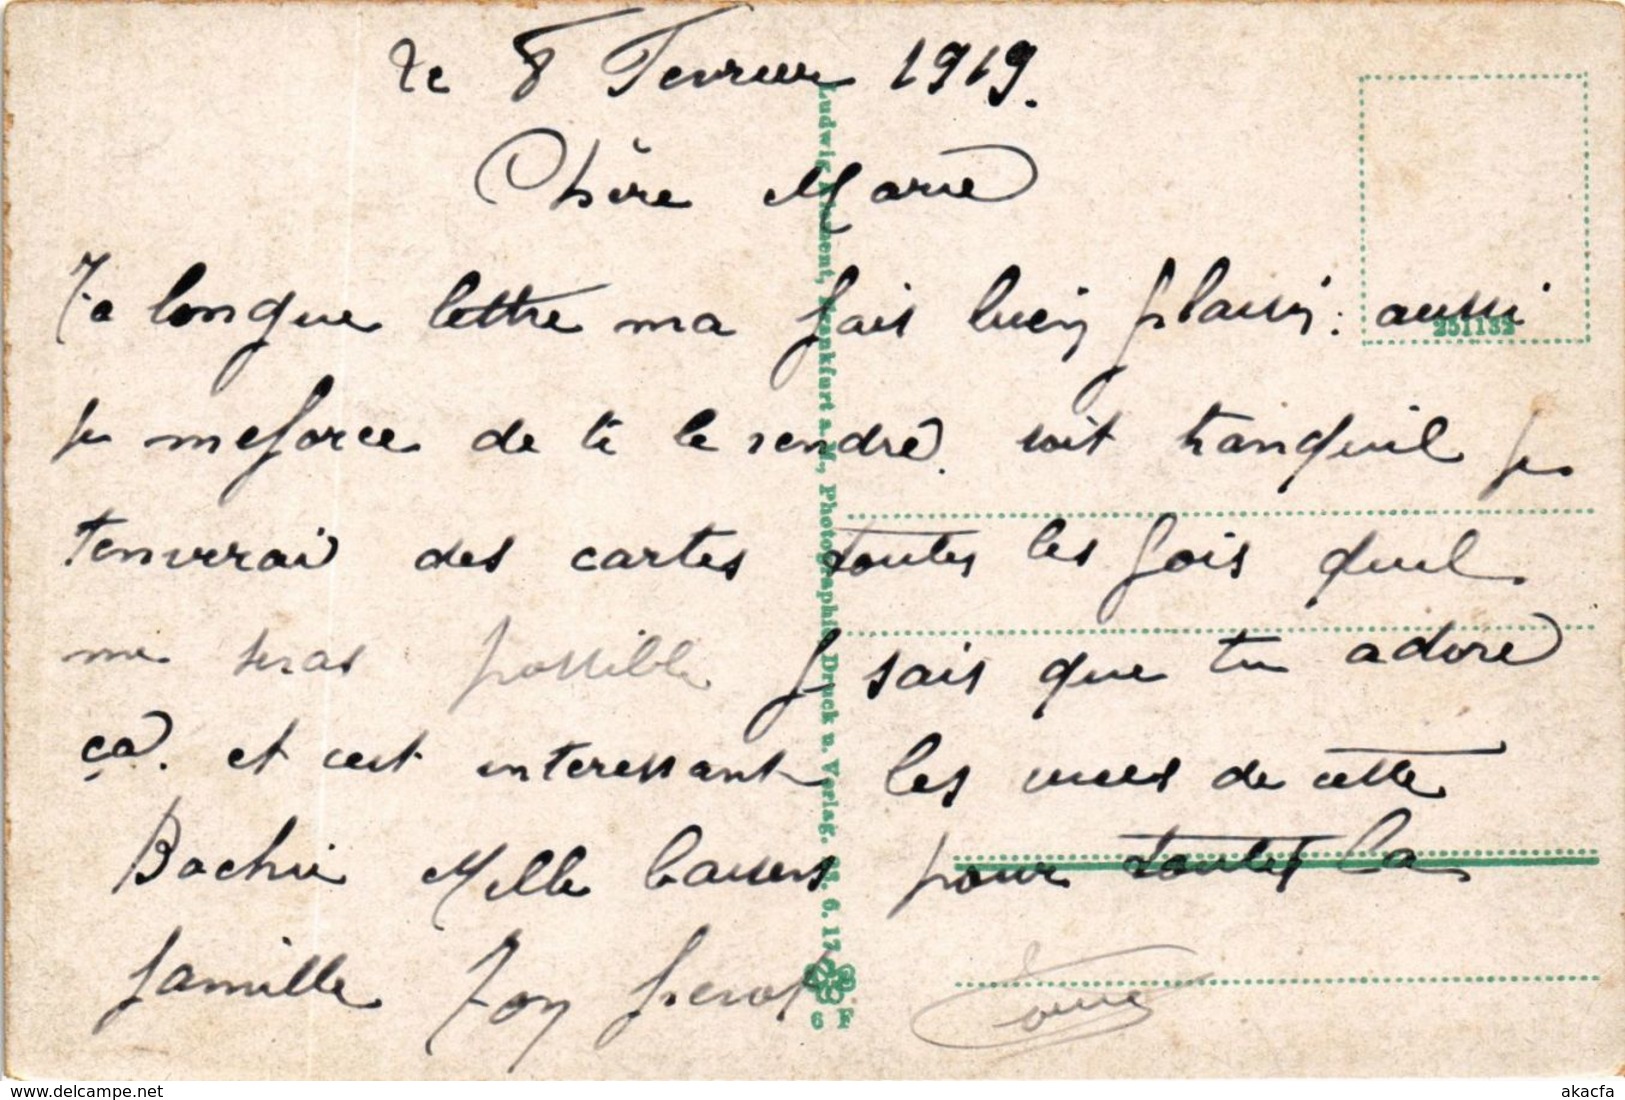 Le 8 Fevrier 1919.
Chère Marie
Ta longue lettre ma fais bien plaisir. aussi
je meforce de te le rendre. soit tranquil je
tenverai des cartes toutes les fois quil
me seras possible je sais que tu adore
ça. et cest interessant les vues de cette
Bochie Mille baisers pour toutes la
famille Ton
Ludwig Klement, Frankfurt a. M., Photographie Druck u. Verlag. 6. 17
251132
6 F
akacfa.delcampe.net
akacfa